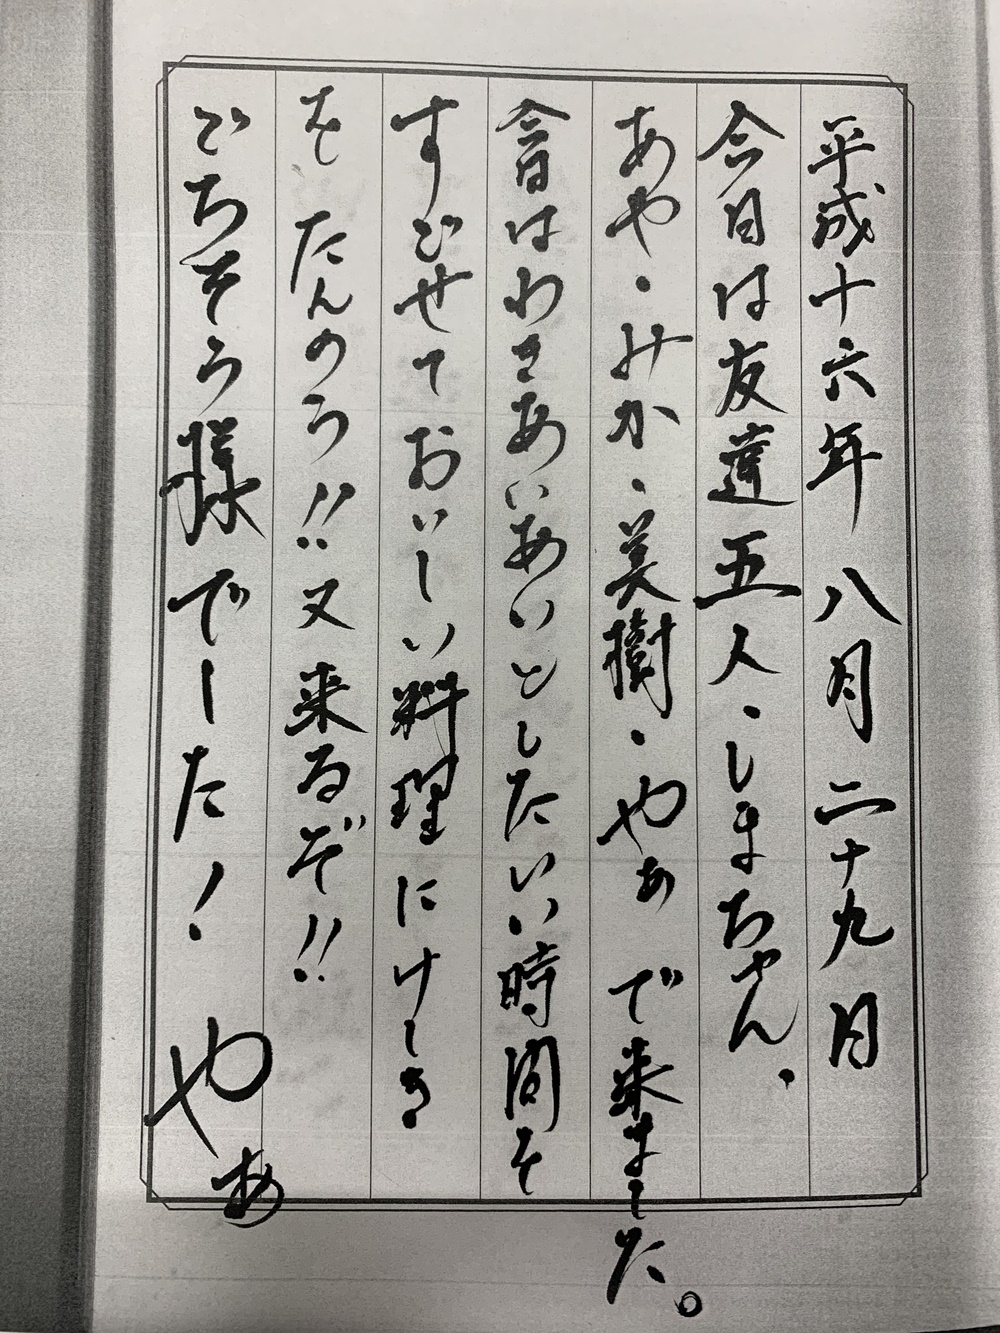 平成十六年 八月 二十九日
今日は友達五人・しまちゃん・
あや・みか・美樹・やぁ で来ました。
今日はわきあいあいとしたいい時間を
すごせておいしい料理にけしき
を たんのう!! 又来るぞ!!
ごちそう様でーした! やぁ